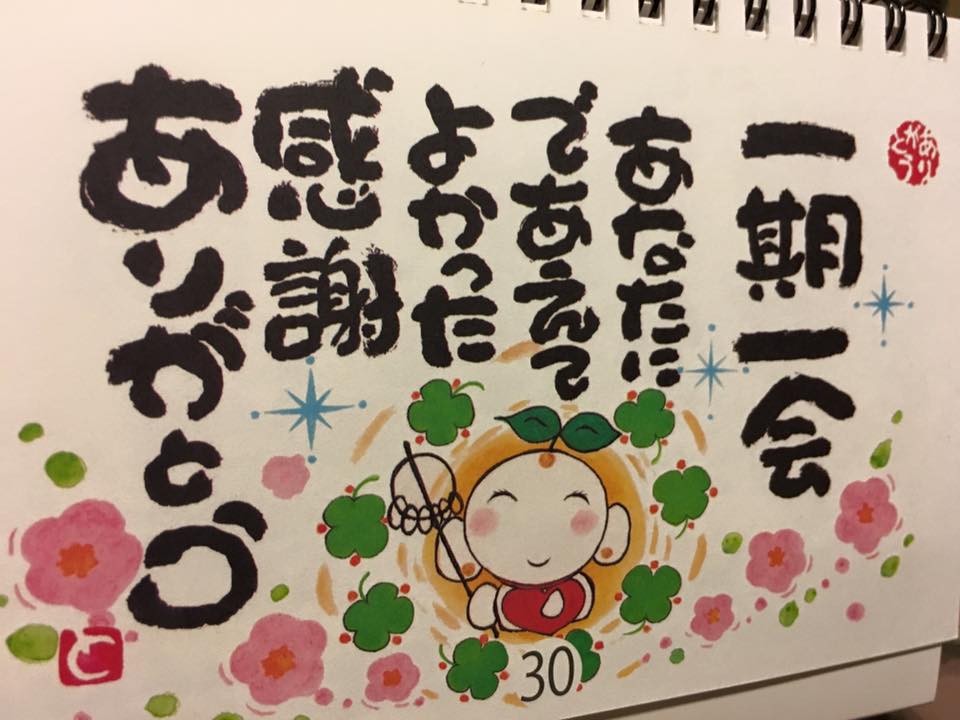 ありがとう
一期一会
あなたに
であえて
よかった
感謝
ありがとう
30